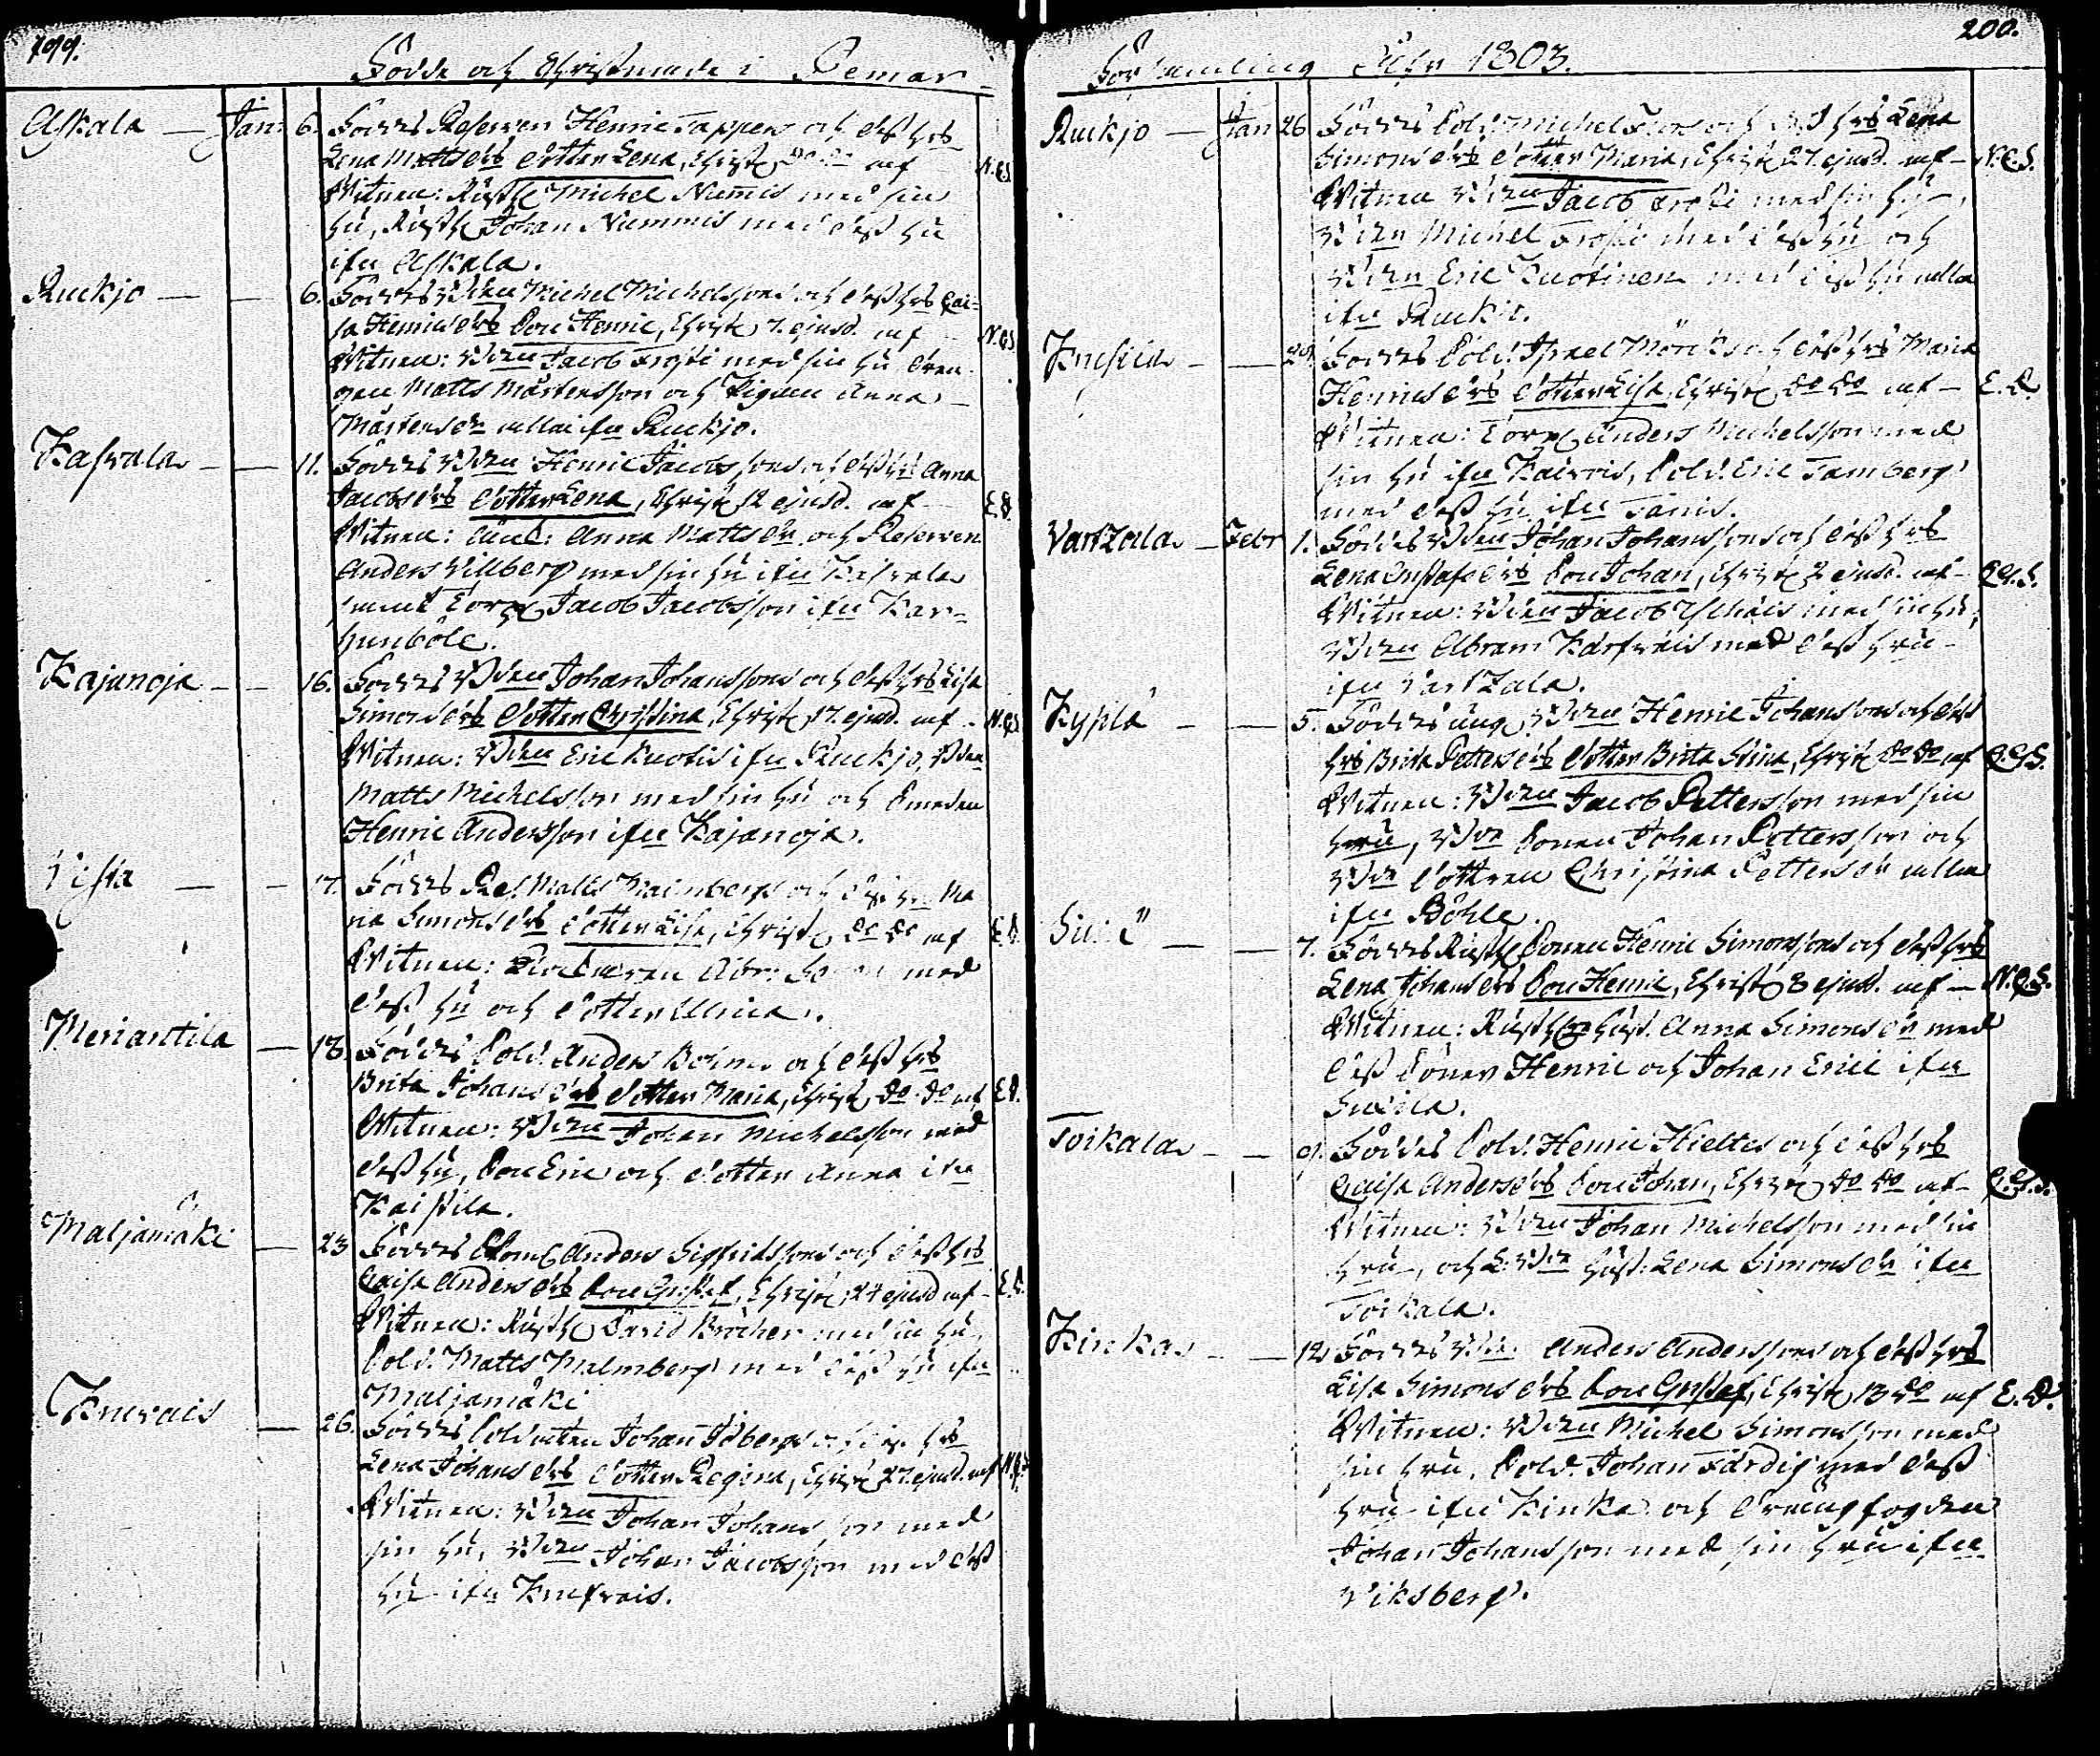 199.
Födde och Christnade i Pemar
Askala — Jan: 6. Föddes Reserven Henric Tappers och dess hrs
Lena Matts drs dotter Lena, Christ: do do af N.C.S.
Witnen: Rusth: Michel Num̄is med sin
hu, Rusth: Johan Nummis med dess hu
ifrn Askala.
Ruckjo — — 6. Föddes Bden Michel Michelssons och dess hrs Cai-
sa Henrics drs son Henric, Christ: 7. ejusd. af N.C.S.
Witnen: Bden Jacob Frosti med sin hu dren-
gen Matts Mårtensson och Pigan Anna
Mårtens dr alla ifrn Ruckjo.
Kasvala — — 11. Föddes Bden Henric Jacobssons och dess hrs Anna
Jacobs drs dotter Lena, Christ: 12 ejusd. af E.D.
Witnen: Anna Matts dr och Reserven
Anders Villberg med sin hu ifrn Kasvala
samt Torp: Jacob Jacobsson ifrn Kar-
hunböle.
Kajanoja — — 16. Föddes Bden Johan Johanssons och dess hrs Lisa
Simons drs dotter Christina, Christ: 17. ejusd. af N.C.S.
Witnen: Bden Eric Kuotis ifrn Ruckjo, Bden
Matts Michelsson med sin hu och Smeden
Henric Andersson ifrn Kajanoja.
Vista — — 17. Föddes Res: Matts Malmbergs och dess hrs Ma
ria Simons drs dotter Lisa, Christ: do do af E.D.
Witnen: Abr: med
dess hu och dotter Ulrica.
Meriantila — 18. Föddes Sold: Anders Bohms och dess hrs
Brita Johans drs dotter Maria, Christ: do do af E.D.
Witnen: Bden Johan Michelsson med
dess hu, son Eric och dotter Anna ifrn
Kaistila.
Maljamäki — 23 Föddes Anders Sigfridssons och dess hrs
Caisa Anders drs son Gustaf, Christ: 24 ejusd af E.D.
Witnen: Rusth: David Bröcker med sin hu,
Sold: Matts Malmberg med dess hu ifrn
Maljamäki
Knevais — 26. Föddes Soldaten Johan Idbergs och dess hrs
Lena Johans drs dotter Regina, Christ: 27. ejusd. af N.C.S.
Witnen: Bden Johan Johansson med
sin hu, Bden Johan Jacobsson med dess
hu ifrn Knefvais.
200.
Församling Åhr 1803.
Ruckjo — Jan 26 Föddes Sold: Michel Fors och dess hrs Lena
Simons drs dotter Maria, Christ: 27. ejusd. af — N.C.S.
Witnen Bden Jacob Frosti med sin hu,
Bden Michel Frosti med dess hu och
Bden Eric Kuotinen med dess hu alla
ifrn Ruckjo.
— — 29. Föddes Sold: Israel Mörcks och dess hrs Maria
Henrics drs dotter Lisa, Christ: do do af — E.D.
Witnen: Torp: Anders Michelsson med
sin hu ifrn Kairois, Sold: Eric Tamberg
med dess hu ifrn Tanis.
Vartzala — Febr 1. Föddes Bden Johan Johanssons och dess hrs
Lena Gustafs drs son Johan, Christ: 2 ejusd. af — C.G.S.
Witnen: Bden Jacob Yskais med sin hu,
Bden Abram Karfvais med dess hru
ifrn Vartzala.
Kyslä — — 5. Föddes ung Bden Henric Johanssons och dess
hrs Brita Petters drs dotter Brita Stina, Christ: do do af C.G.S.
Witnen: Bden Jacob Pettersson med sin
hru, Bde sonen Johan Pettersson och
Bde dottren Christina Petters dr alla
ifrn Böhle.
— — 7. Föddes Rusth: sonen Henric Simonssons och dess hrs
Lena Johans drs son Henric, Christ: 8 ejusd. af — N.C.S.
Witnen: Rusth: hust. Anna Simons dr med
dess söner Henric och Johan Eric ifrn
Toikala — — 9. Föddes Sold: Henric Hieltes och dess hrs
Caisa Anders drs son Johan, Christ: do do af — C.G.S.
Witnen: Bden Johan Michelsson med sin
hru, och Bde hust: Lena Simons dr ifrn
Toikala.
Kinkas — — 12. Föddes Bden Anders Anderssons och dess hrs
Lisa Simons drs son Gustaf, Christ: 13 do af E.D.
Witnen: Bden Michel Simonsson med
sin hru, Sold: Johan Färdig med dess
hru ifrn Kinkas och drengfogden
Johan Johansson med sin hru ifrn
Viksberg.